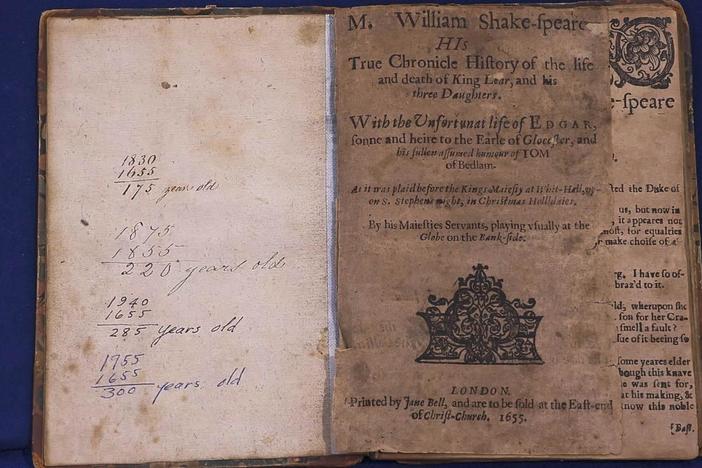 1830
1655
175 years old
1875
1655
220 years old
1940
1655
285 years old
1955
1655
300 years old
M. William Shake-ſpeare
HIs
True Chronicle Hiſtory of the life
and death of King Lear, and his
three Daughters.
With the Unfortunat life of EDGAR,
ſonne and heire to the Earle of Gloceſter, and
his ſullen aſſumed humour of TOM
of Bedlam.
As it was plaid before the Kings Maieſty at Whit-Hall, up-
on S. Stephens night, in Chriſtmas Hollidaies.
By his Maieſties Servants, playing vſually at the
Globe on the Bank-ſide.
LONDON.
Printed by Jane Bell, and are to be ſold at the East-end
of Chriſt-Church. 1655.
e-ſpeare
ted the Duke of
us, but now in
, it appeares not
moſt, for equalties
make choiſe of
rg. I have ſo of-
braz'd to it.
ld, wherupon ſhe
ſon for her Cra-
ſmell a fault?
ſue of it beeing ſo
ſome yeares elder
hough this knave
e was ſent for,
at his making, &
know this noble
Baſt.